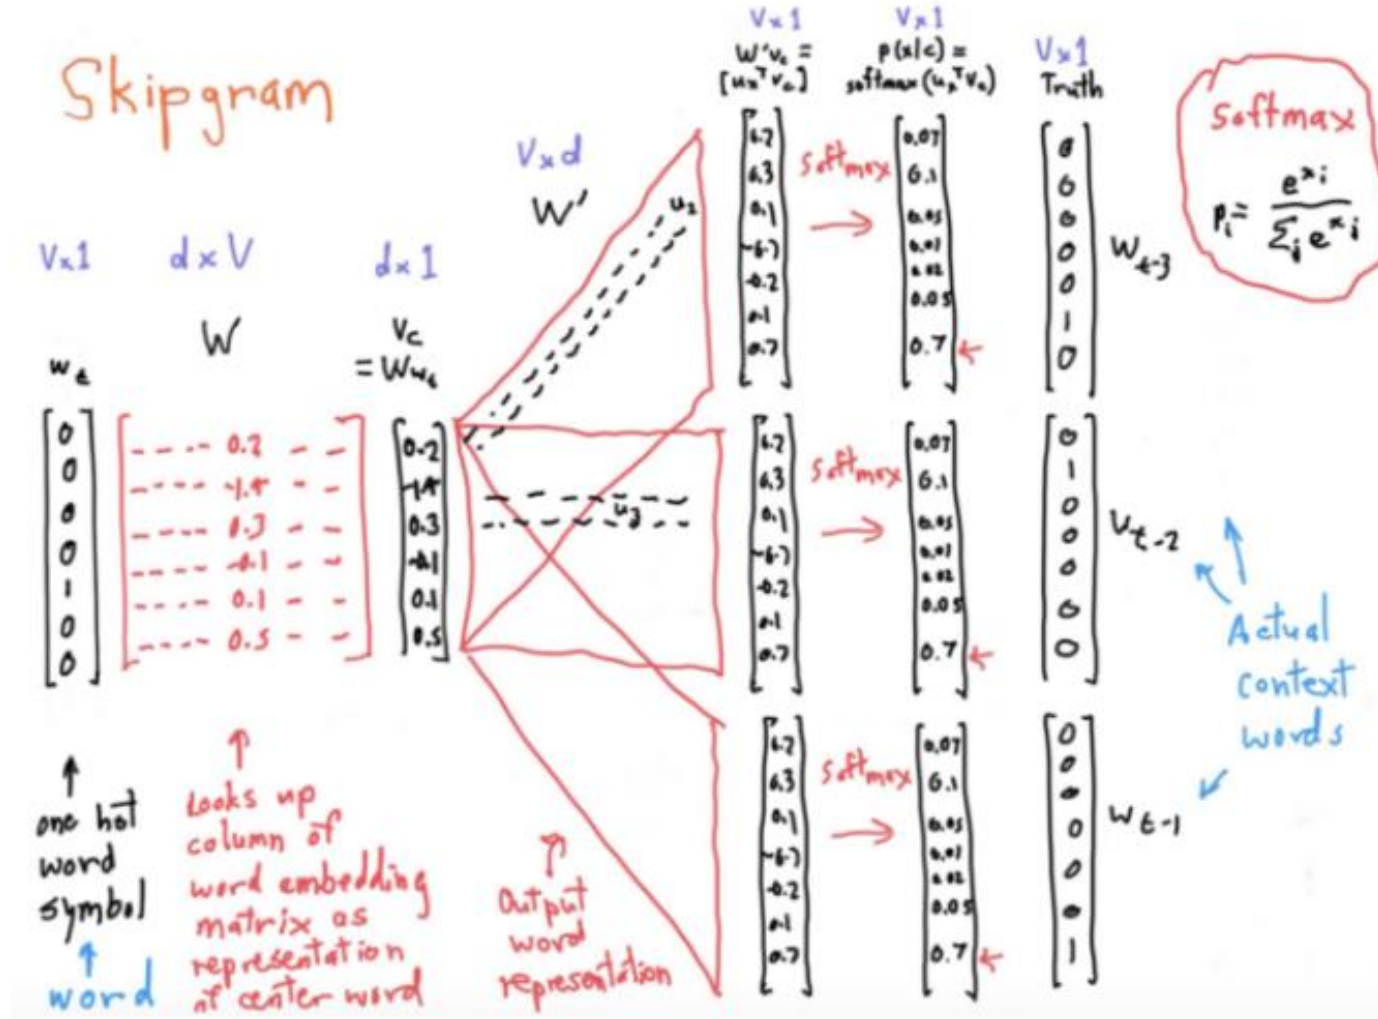 Skipgram
V×1
d×V
W
d×1
V×d
W'
w_t
V_c
= Ww_t
0
0
0
0
1
0
0
---- 0.2 - -
---- -1.4 - -
---- 0.3 - -
---- -0.1 - -
---- 0.1 - -
---- 0.5 - -
0.2
-1.4
0.3
-0.1
0.1
0.5
u_2
u_3
V×1
W'v_c =
[u_x^T v_c]
V×1
p(x|c) =
softmax(u_x^T v_c)
V×1
Truth
softmax
p_i = e^{x_i} / Σ_j e^{x_i}
6.3
0.1
-0.2
0.1
0.7
softmax
0.07
0.1
0.05
0.01
0.02
0.05
0.7
0
0
0
0
0
1
0
w_t-3
6.3
0.1
-0.2
0.1
0.7
softmax
0.07
0.1
0.05
0.01
0.02
0.05
0.7
0
1
0
0
0
0
0
w_t-2
6.3
0.1
-0.2
0.1
0.7
softmax
0.07
0.1
0.05
0.01
0.02
0.05
0.7
0
0
0
0
0
0
1
w_t-1
Actual
context
words
one hot
word
symbol
word
Looks up
column of
word embedding
matrix as
representation
of center word
Output
word
representation